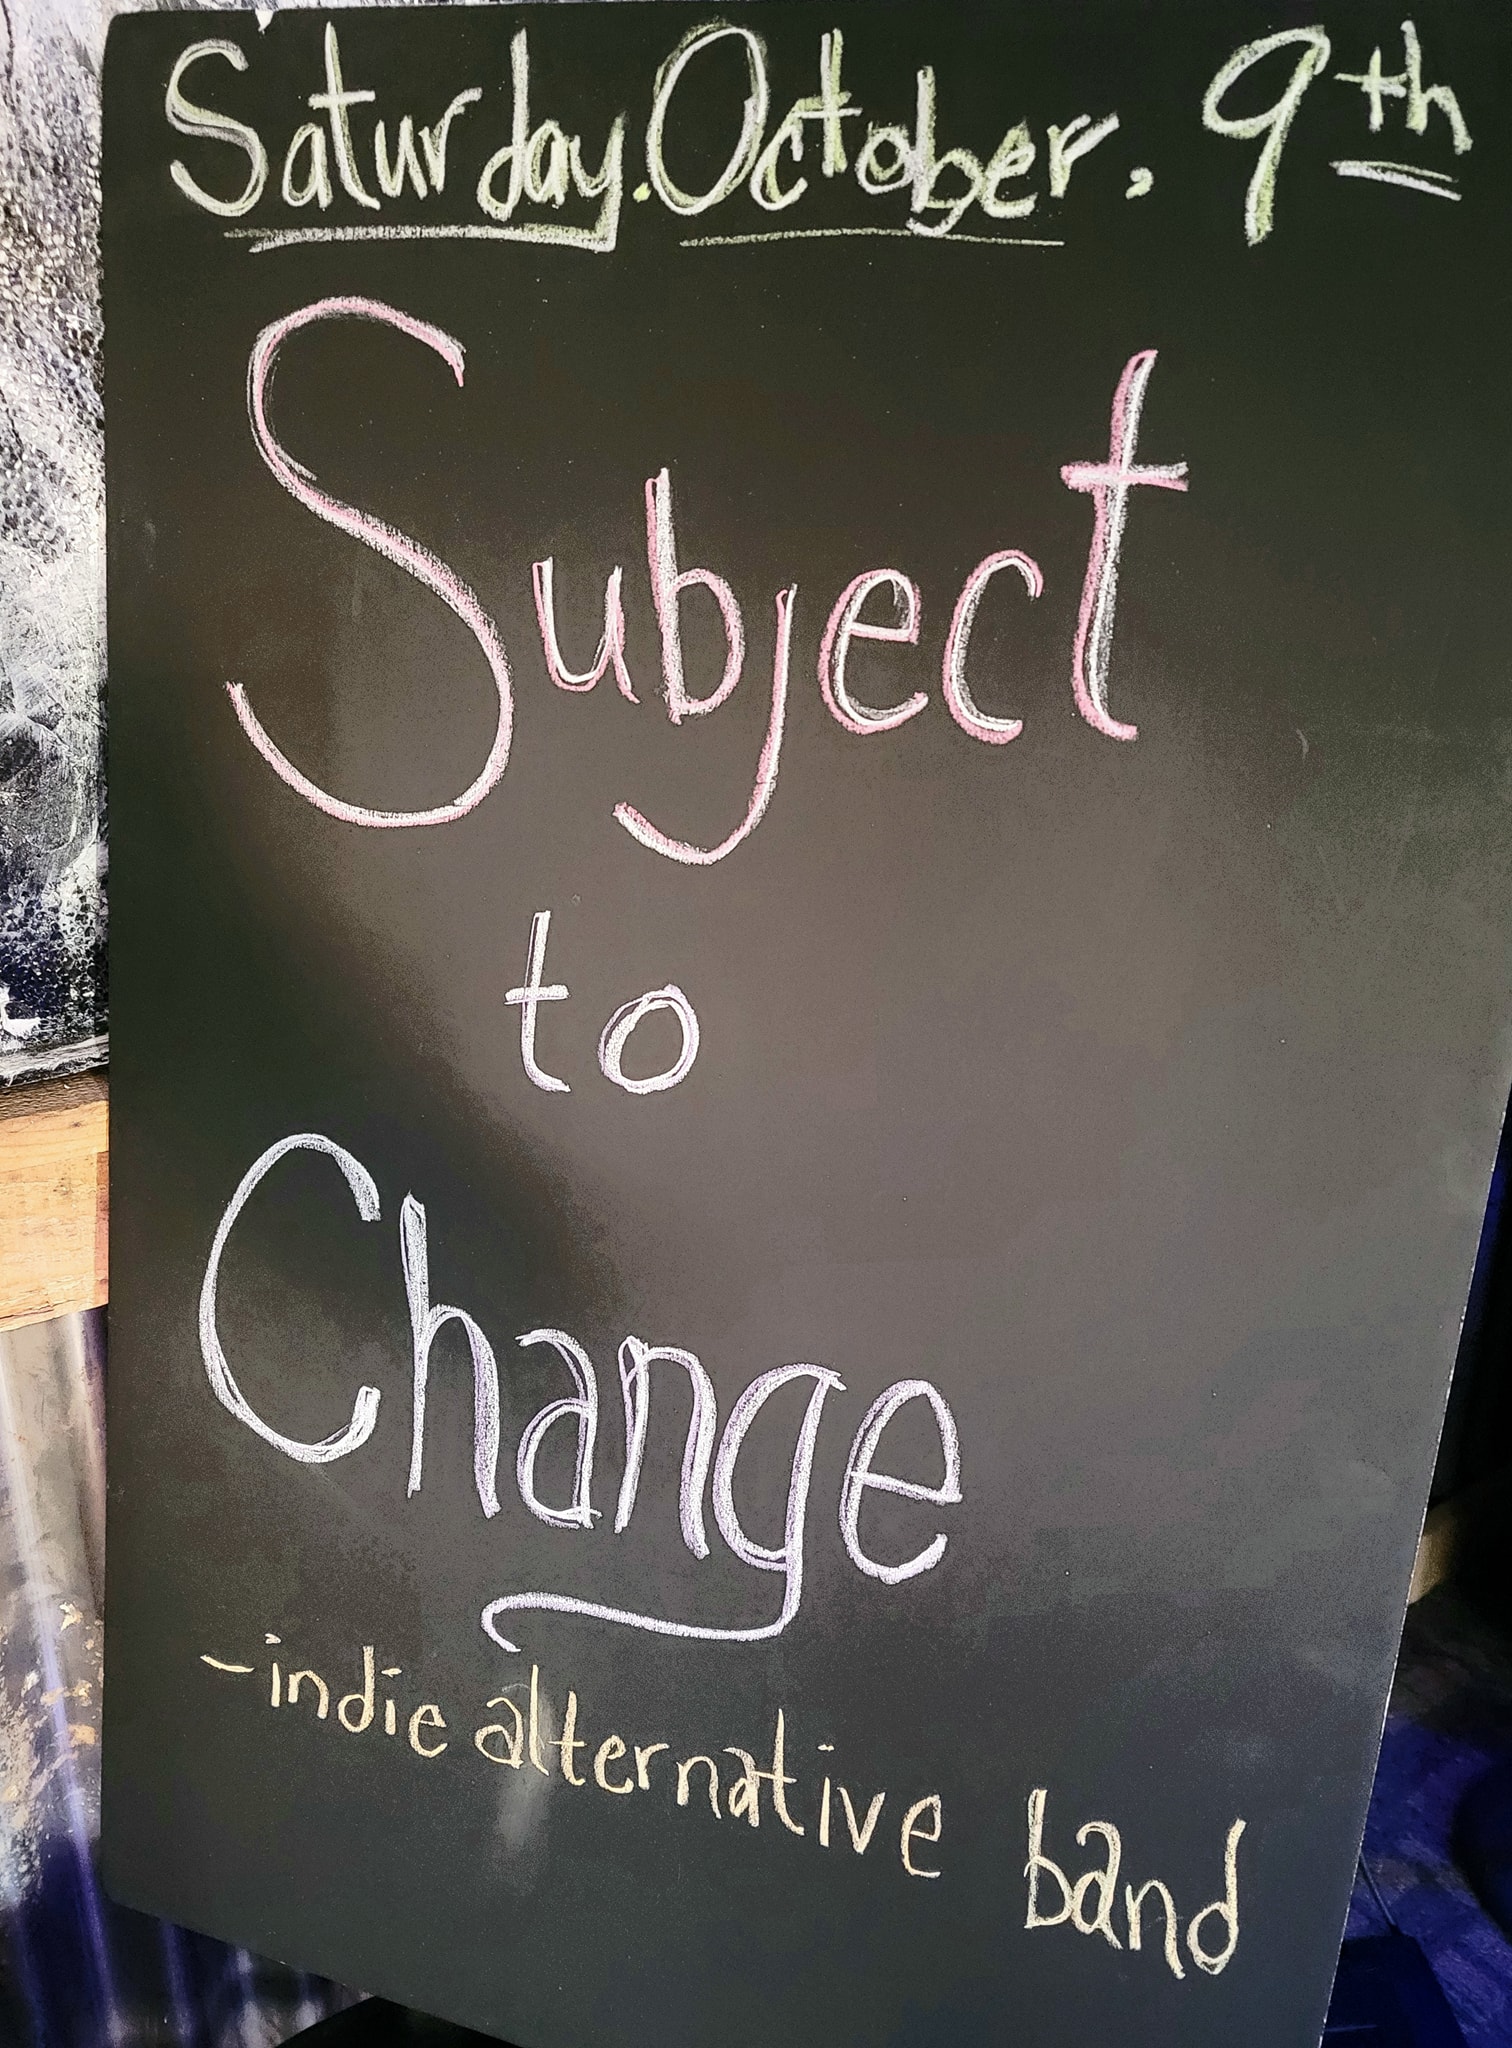 Saturday. October. 9th
Subject
to
Change
-indie alternative band